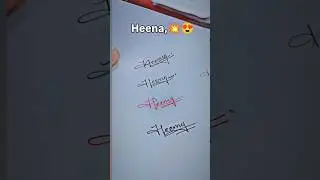 Heena,💥😍
Heena
Heena
Heena
Heena